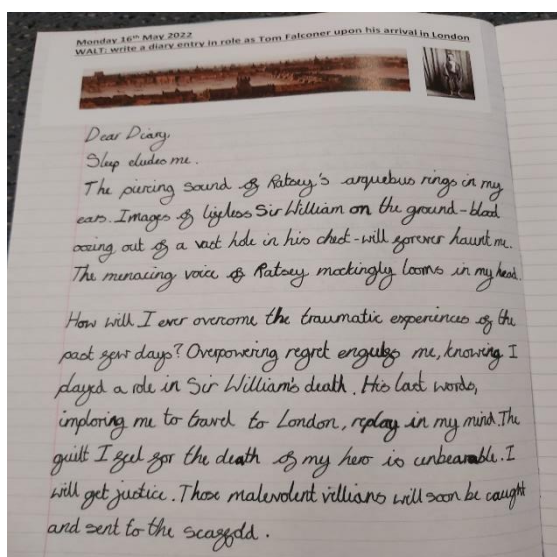 Monday 16th May 2022
WALT: write a diary entry in role as Tom Falconer upon his arrival in London
Dear Diary,
Sleep eludes me.
The piercing sound of Ratsey's arquebus rings in my
ears. Images of lifeless Sir William on the ground - blood
oozing out of a vast hole in his chest - will forever haunt me.
The menacing voice of Ratsey mockingly looms in my head.
How will I ever overcome the traumatic experiences of the
past few days? Overpowering regret engulfs me, knowing I
played a role in Sir William's death. His last words,
imploring me to travel to London, replay in my mind. The
guilt I feel for the death of my hero is unbearable. I
will get justice. Those malevolent villians will soon be caught
and sent to the scaffold.